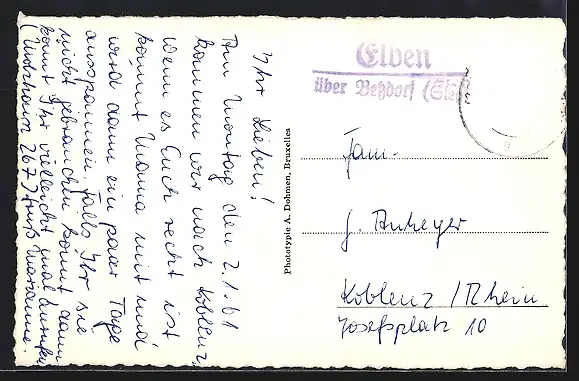 Ihr Lieben!
Am Montag den 2.1.61
kommen wir nach Koblenz,
wenn es Euch recht ist
kommt Mama mit und
wird dann ein paar Tage
ausspannen. Falls Ihr sie
nicht gebrauchen könnt dann
könnt Ihr vielleicht mal anrufen
267) Gruß Marianne.
Phototypie A. Dohmen, Bruxelles
Elben
über Betzdorf (Sieg)
Fam.
J. Anheyer
Koblenz / Rhein
Josefsplatz 10